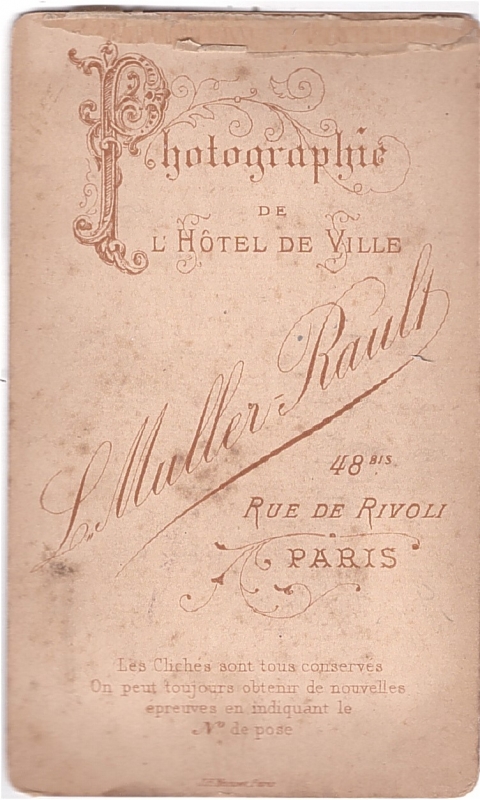 Photographie
DE
L'HÔTEL DE VILLE
L. Muller-Rault
48 BIS
RUE DE RIVOLI
PARIS
Les Clichés sont tous conservés
On peut toujours obtenir de nouvelles
épreuves en indiquant le
Nº de pose